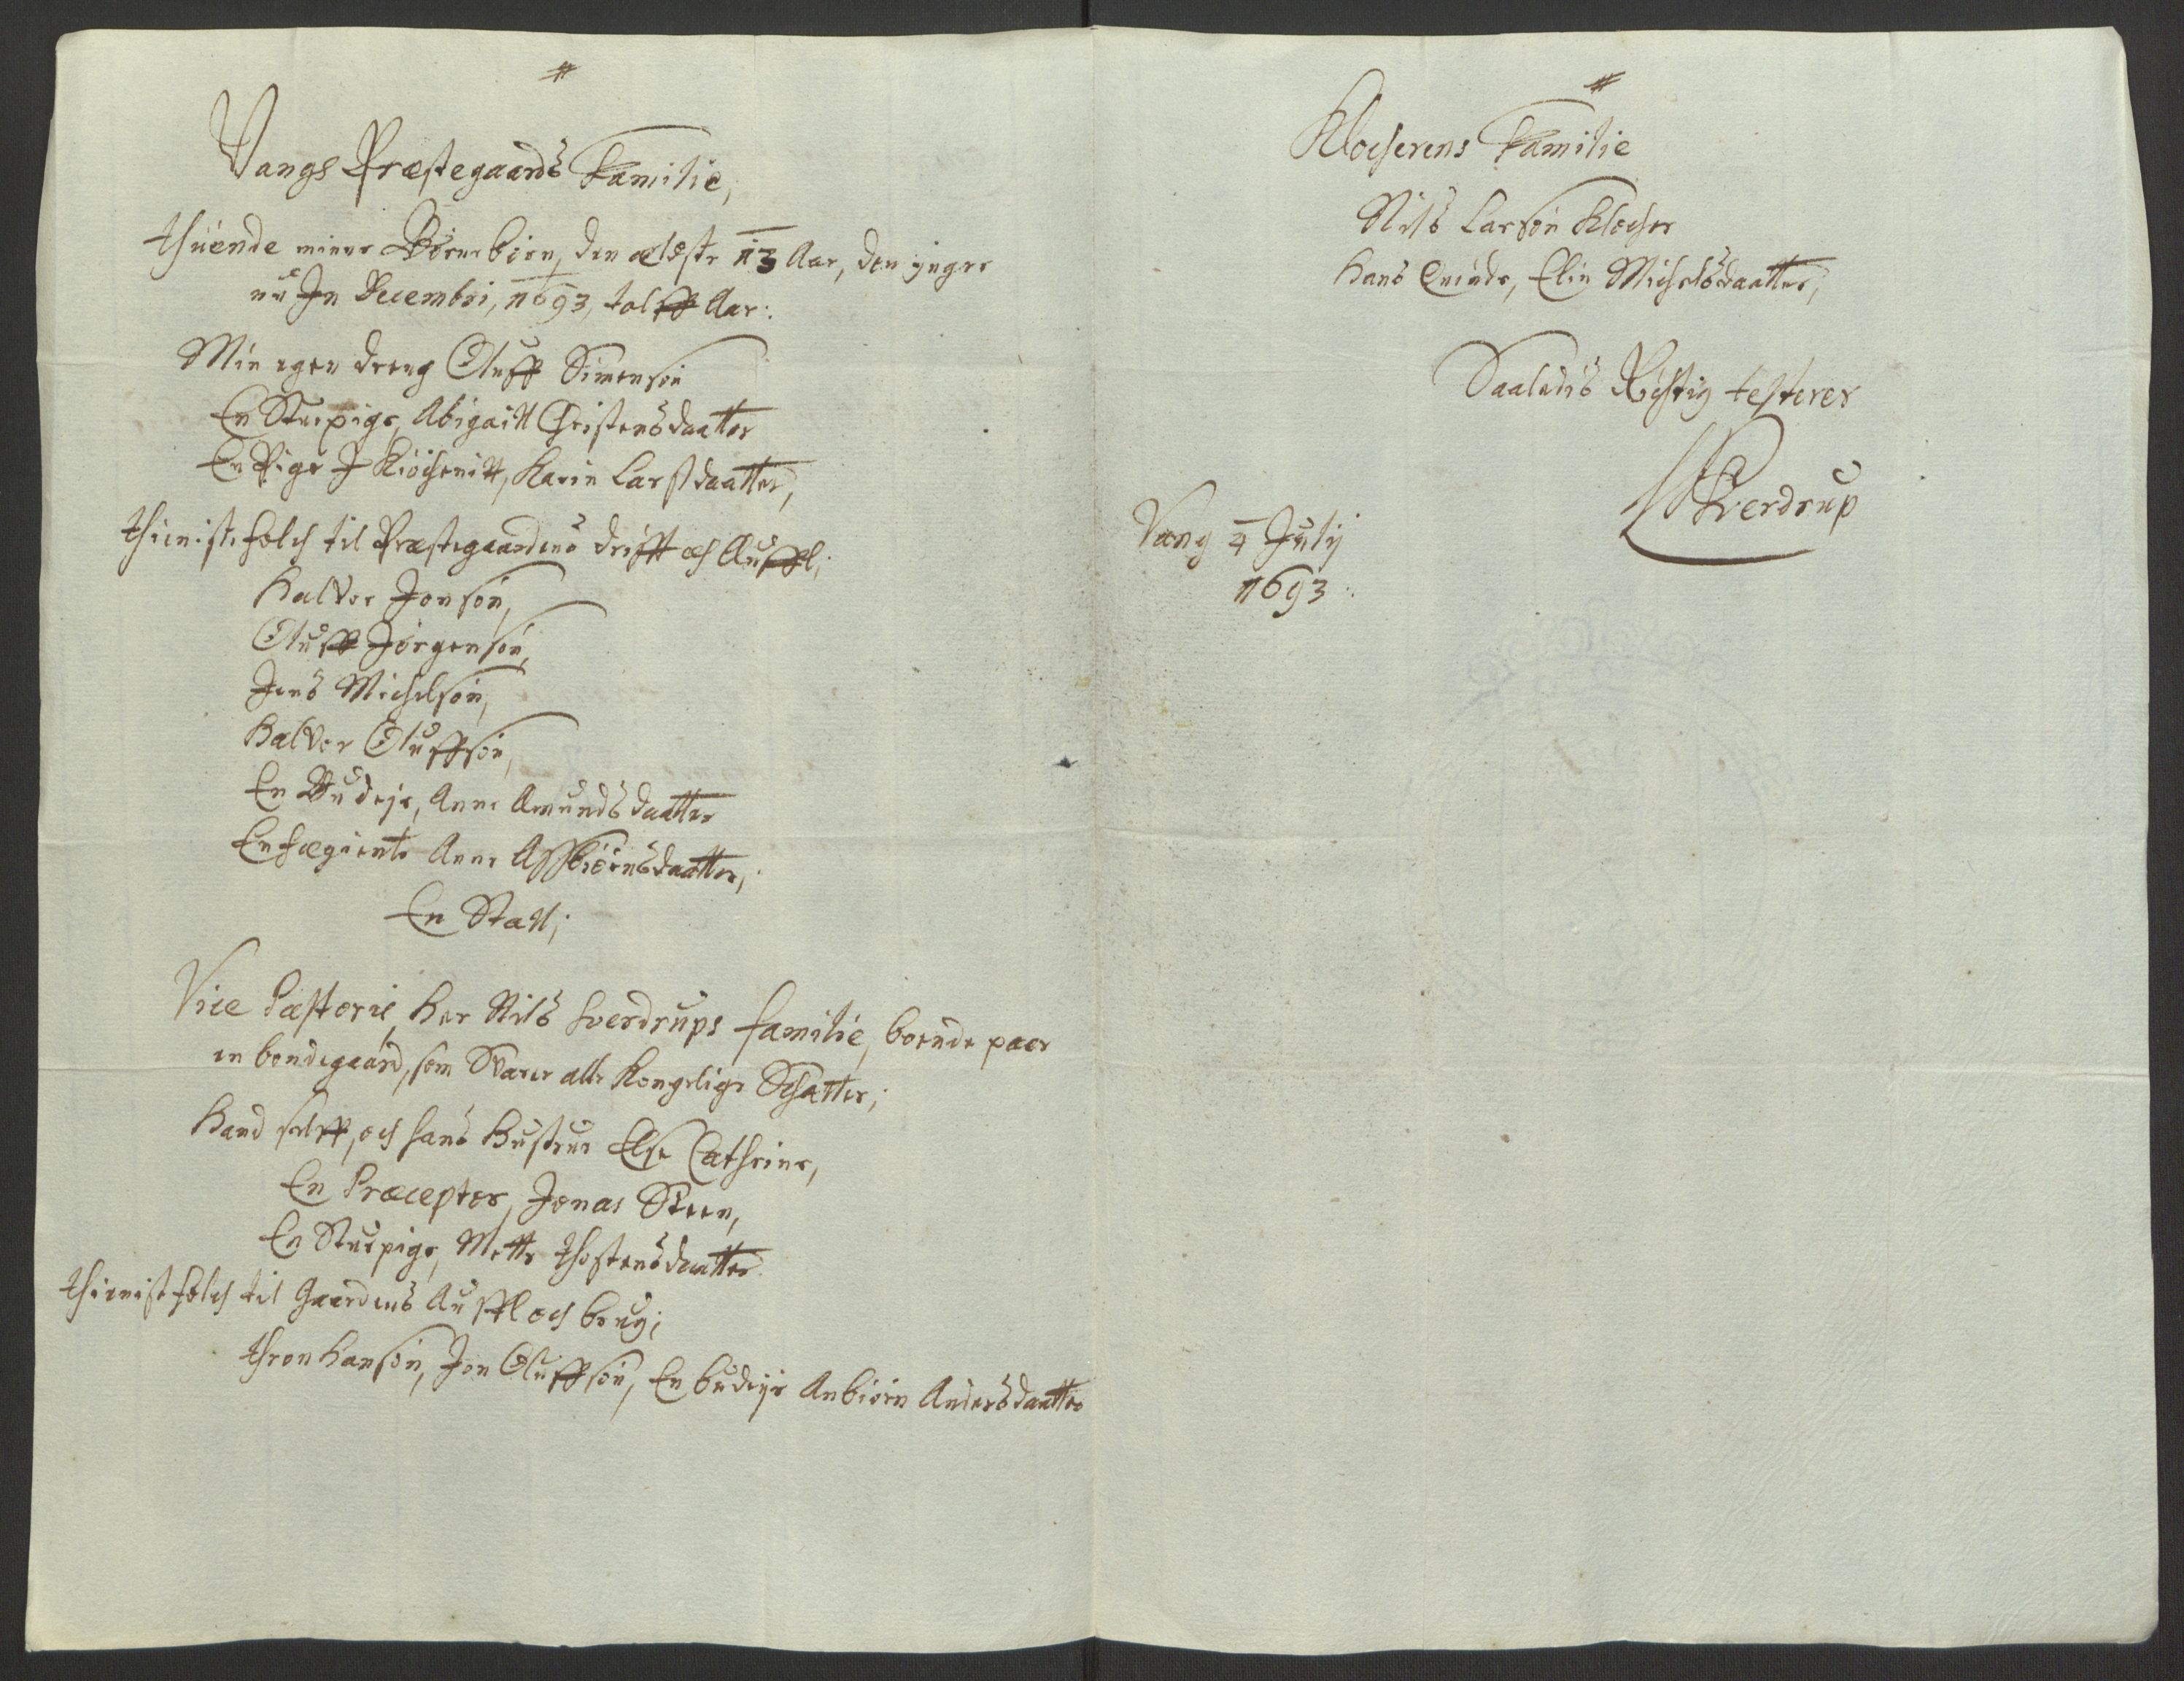 #
Vangs Præstegaards Familie,
thuende minne Børnebörn, den ældste 13 Aar, den yngre
nu Jn Decembri, 1693, tolff Aar:
Min egen dreng Oluff Simensön
En Stuepige, Abigaill Christensdaatter
En Pige J Kiöchenitt, Karin Larsdaatter,
thienistefolch til Præstegaardens drifft och Auffl;
Halvor Jonsön,
Oluff Jörgensön,
Jens Michelsön,
Halvor Oluffsön,
En Budeye, Anne Amundsdaatter
En fægiente Anne Assbiörnsdaatter,
En Stall;
Vice Pastoris Her Nils Sverdrups familie, boende paa
en bondegaard, som Svarer alle Kongelige Schatter;
Hand selff, och hans Hustrue Else Cathrine,
En Præceptor, Jonas Steen,
En Stuepige, Mette Thostensdaatter
thienistfolch til Gaardens Auffl och brug;
thron Hansön, Jon Oluffsön, En budeye Anbiörn Andersdaatter
#
Klocherens Familie
Nils Larsön Klocher
Hans Quinde, Elin Michelsdaatter;
Saaledis Richtig testerer
Sverdrup
Vang 4 Julij
1693: